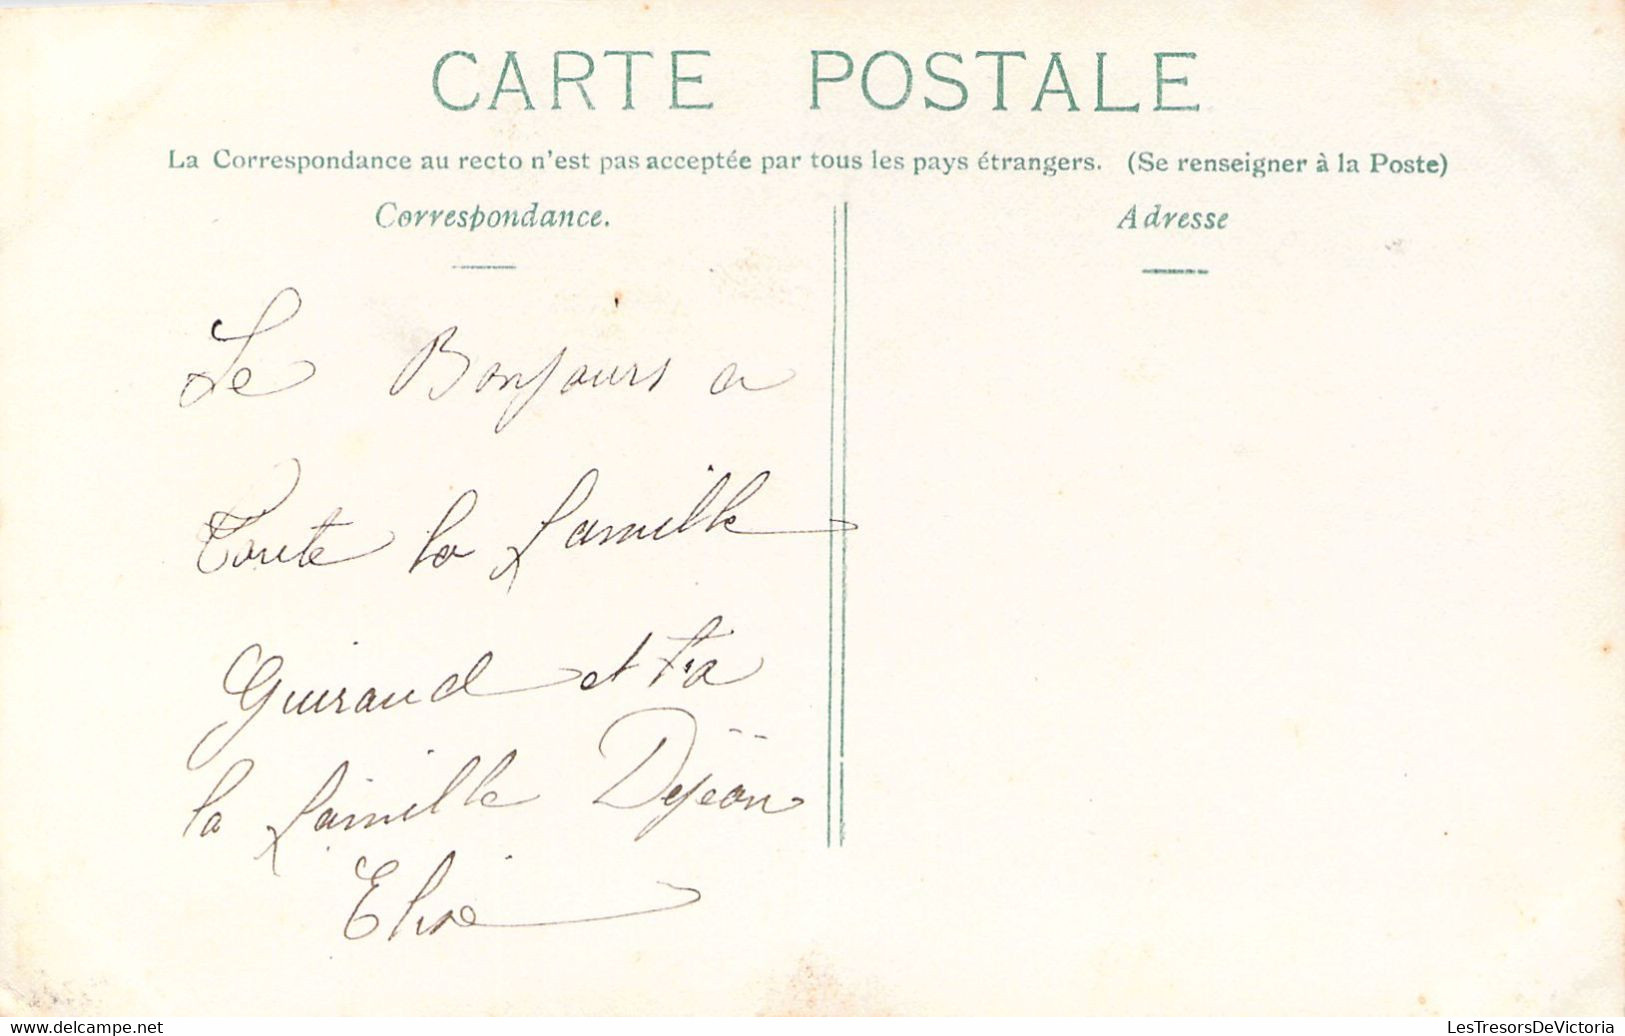 CARTE POSTALE
La Correspondance au recto n'est pas acceptée par tous les pays étrangers. (Se renseigner à la Poste)
Correspondance.
Adresse
Le Bonjours a
Toute la famille
Guiraud et
la famille Dejean
Elise
LesTresorsDeVictoria
www.delcampe.net